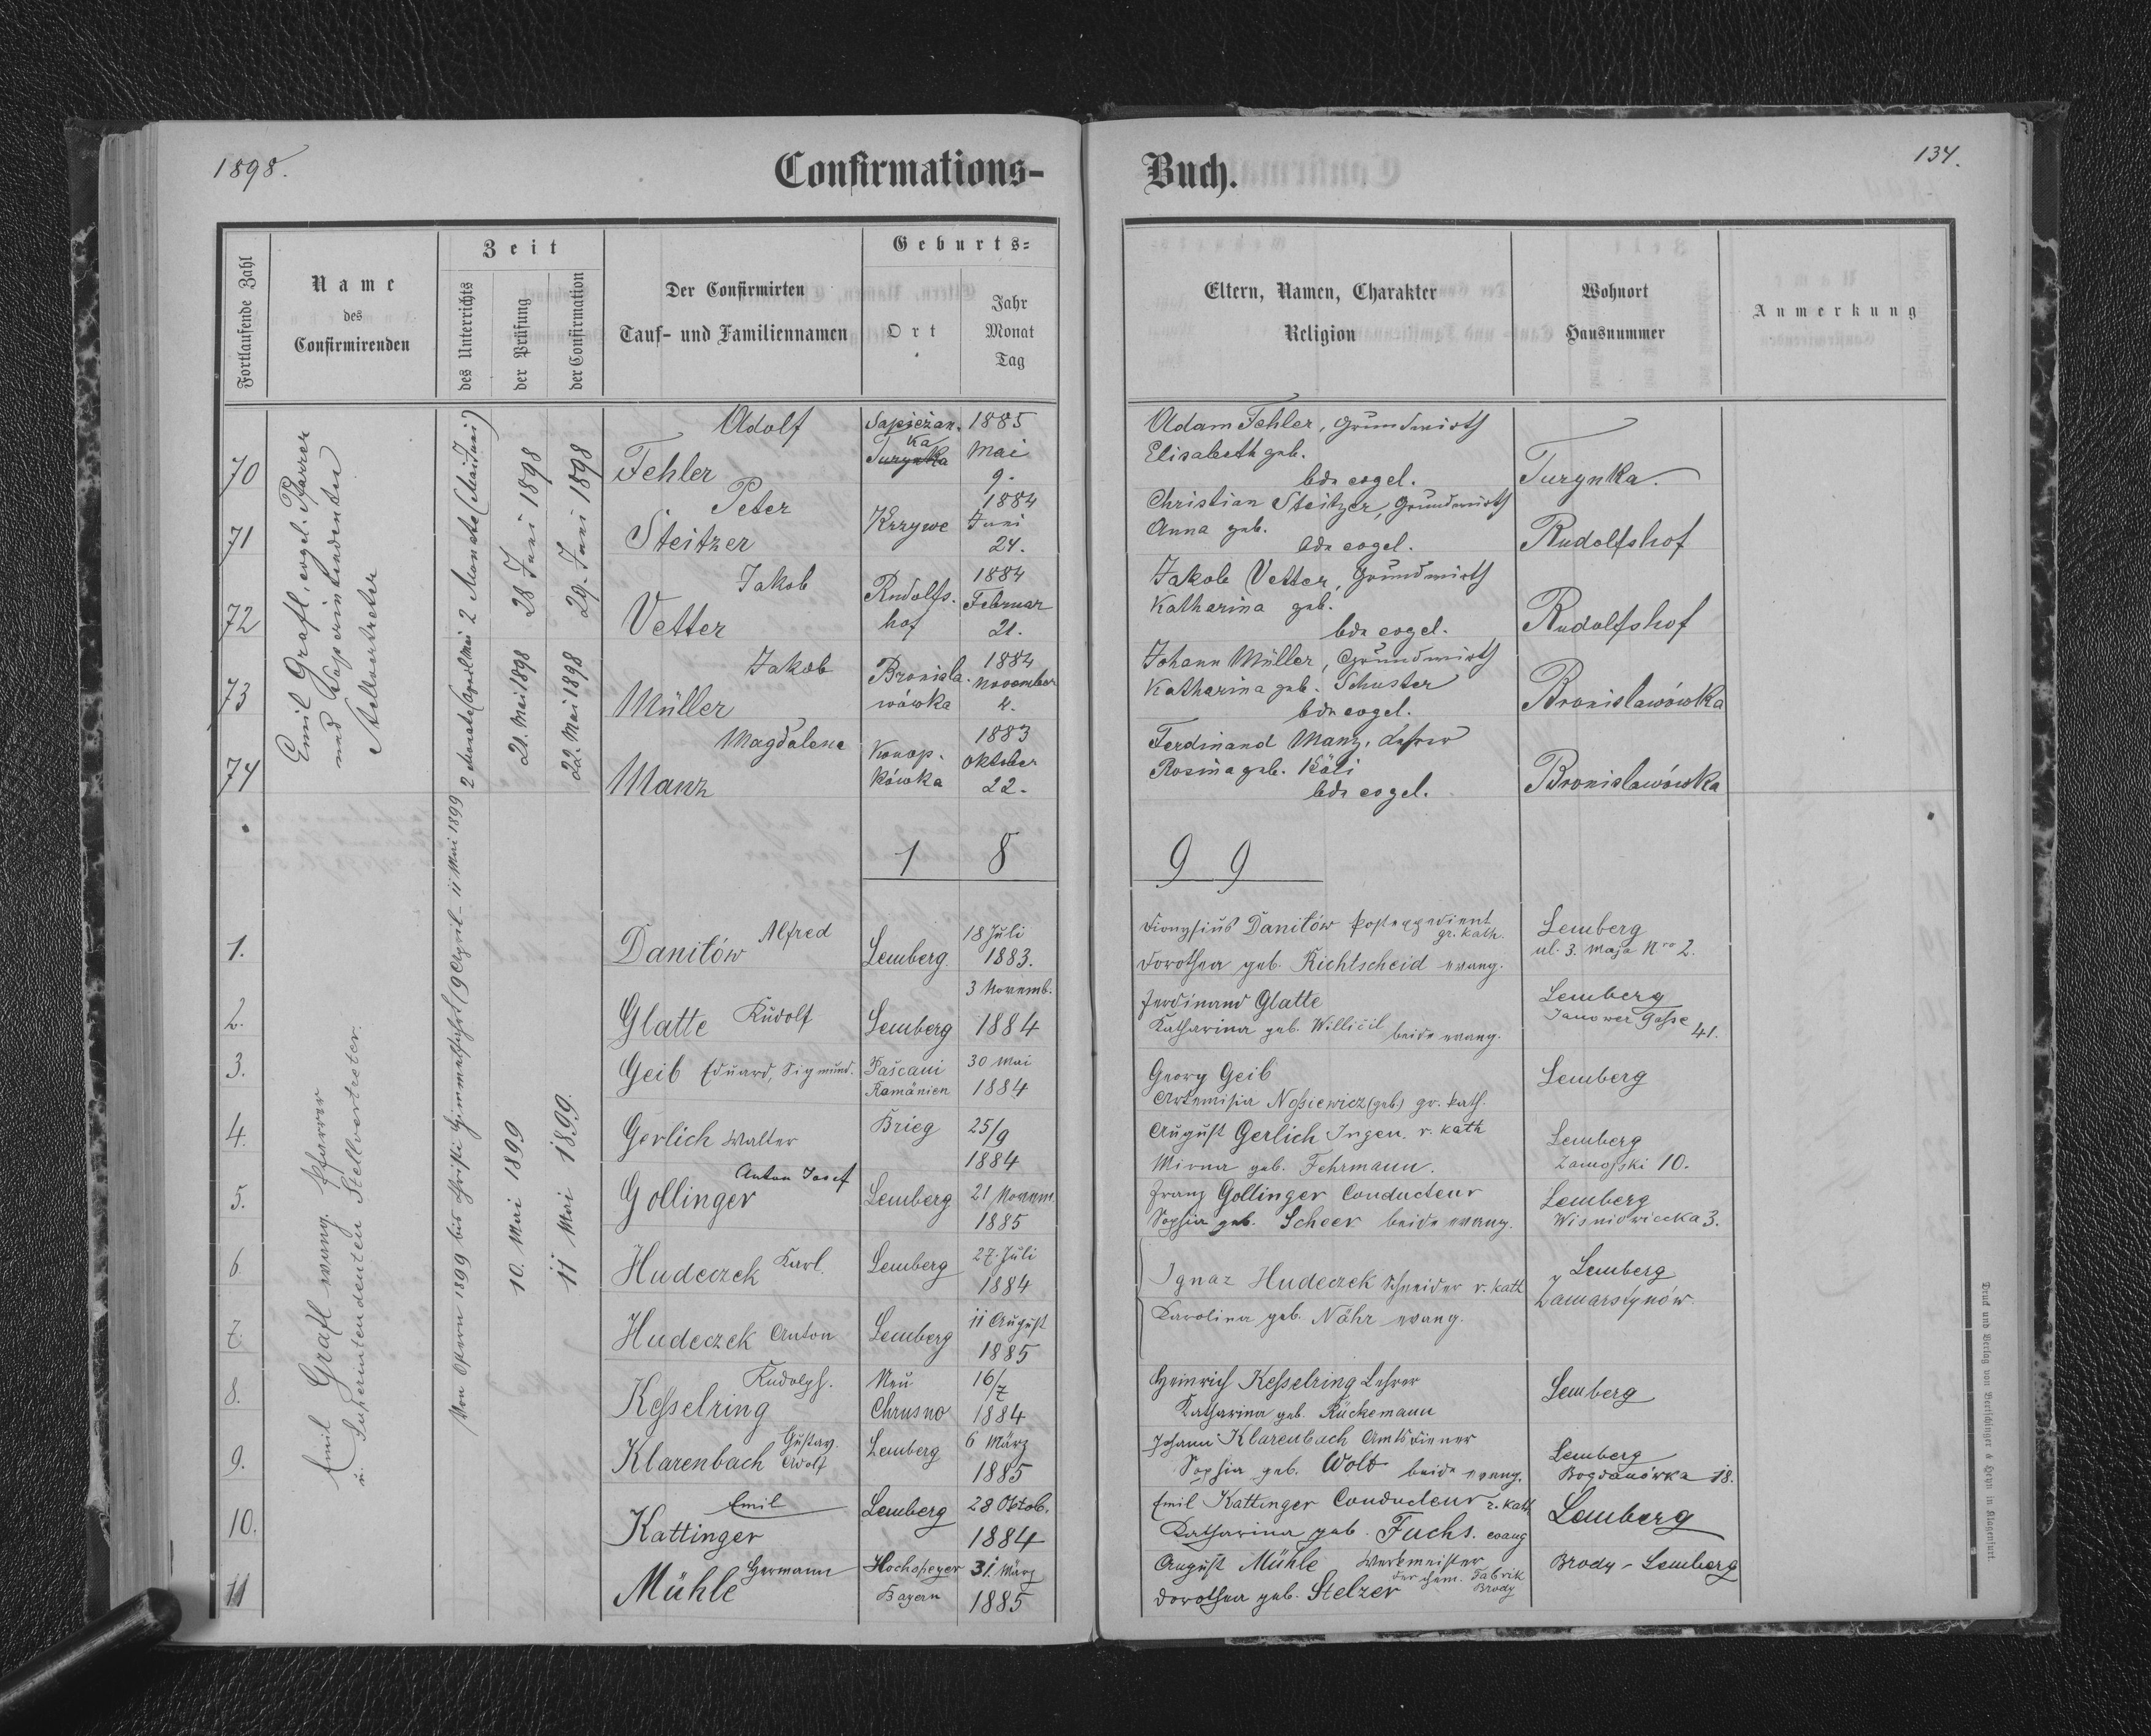 1898.
Confirmations-
Buch.
134.
Fortlaufende Zahl
Name
des
Confirmirenden
Zeit
des Unterrichts
der Prüfung
der Confirmation
Der Confirmirten
Tauf- und Familiennamen
Geburts=
Ort
Jahr
Monat
Tag
Eltern, Namen, Charakter
Religion
Wohnort
Hausnummer
Anmerkung
Emil Grafl, evgel. Pfarrer
und Superintendenten
Stellvertreter
2 Monate (Mai Juni)
28 Juni 1898
29. Juni 1898
2 Monate (April Mai
21. Mai 1898
22. Mai 1898
70
Adolf
Fehler
Sapieżan.
ka
Turynka
1885
Mai
9.
Adam Fehler, Grundwirth
Elisabeth geb.
bde evgel.
Turynka.
71
Peter
Steitzer
Krzywe
1884
Juni
24.
Christian Steitzer, Grundwirth
Anna geb.
bde evgel.
Rudolfshof
72
Jakob
Vetter
Rudolfs.
hof
1884
Februar
21.
Jakob Vetter, Grundwirth
Katharina geb.
bde evgel.
Rudolfshof
73
Jakob
Müller
Bronisla.
wówka
1884
November
4.
Johann Müller, Grundwirth
Katharina geb. Schuster
bde evgel.
Bronislawówka
74
Magdalene
Manz
Konop.
kówka
1883
Oktober
22.
Ferdinand Manz, Lehrer
Rosina geb. Käli
bde evgel.
Bronislawówka
1 8 9 9
Emil Grafl evang. Pfarrer
u. Superintendenten Stellvertreter.
Von Ostern 1899 bis Christi Himmelfahrt (9 April - 11 Mai 1899
10. Mai 1899
11 Mai 1899.
1.
Alfred
Daniłów
Lemberg
18 Juli
1883.
Dionysius Daniłów Postexpedient
gr. kath.
Dorothea geb. Richtscheid evang.
Lemberg
ul. 3. Maja Nro 2.
2.
Glatte Rudolf
Lemberg
3 Novemb.
1884
Ferdinand Glatte
Katharina geb. Willicil beide evang.
Lemberg
Janower Gasse
41.
3.
Geib Eduard, Sigmund.
Paścani
Rumänien
30 Mai
1884
Georg Geib
Artemisia Nossiewicz (geb.) gr. kath.
Lemberg
4.
Gerlich Walter
Brieg
25/9
1884
August Gerlich Ingen. r. kath
Minna geb. Fehrmann.
Lemberg
Zamojski 10.
5.
Anton Josef
Gollinger
Lemberg
21 Novem.
1885
Franz Gollinger Conducteur
Sophia geb. Scheer beide evang.
Lemberg
Wisniowiecka 3.
6.
Hudeczek Karl.
Lemberg
27. Juli
1884
Ignaz Hudeczek Schneider r. kath
Karolina geb. Nähr evang.
Lemberg
Zamarstynów.
7.
Hudeczek Anton
Lemberg
11 August
1885
8.
Rudolph.
Kesselring
Neu
Chrusno
16/7
1884
Heinrich Kesselring Lehrer
Katharina geb. Rückemann
Lemberg
9.
Klarenbach Gustav.
Adolf
Lemberg
6 März
1885
Johann Klarenbach Amtsdiener
Sophia geb. Wolf beide evang.
Lemberg
Bogdanówka 18.
10.
Emil
Kattinger
Lemberg
28 Oktob.
1884
Emil Kattinger Conducteur r. kath
Katharina geb. Fuchs. evang
Lemberg
11
Mühle Hermann
Hochspeyer
Bayern
31. März
1885
August Mühle Werkmeister
der chem. Fabrik
Brody
Dorothea geb. Stelzer
Brody - Lemberg
Druck und Verlag von Bertschinger & Heyn in Klagenfurt.